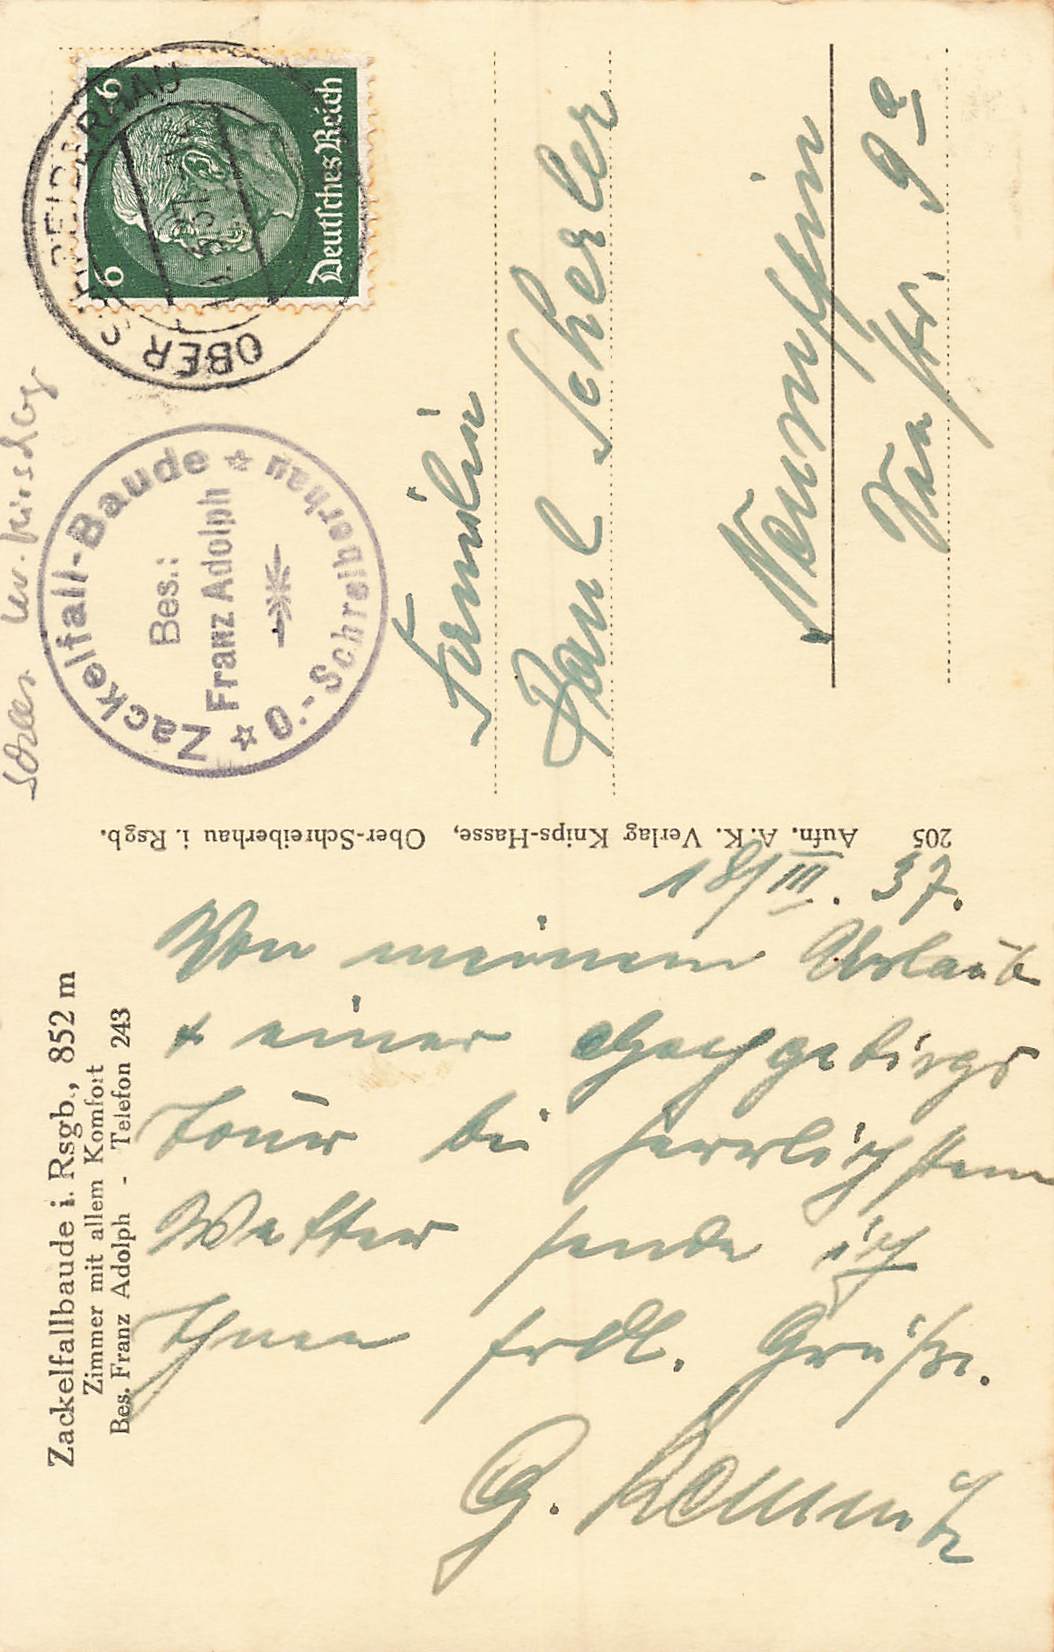 Zackelfallbaude i. Rsgb., 852 m
Zimmer mit allem Komfort
Bes. Franz Adolph - Telefon 243
18/III. 37.
Von meinem Urlaub
+ einer Hochgebirgs
tour bei herrlichstem
Wetter sende ich
Ihnen frdl. Grüße.
G.
205 Aufn. A. K. Verlag Knips-Hasse, Ober-Schreiberhau i. Rsgb.
Zackelfall-Baude
Bes.:
Franz Adolph
O.-Schreiberhau
OBER SCHREIBERHAU
6 6
Deutsches Reich
Familie
Paul Scherler
9a